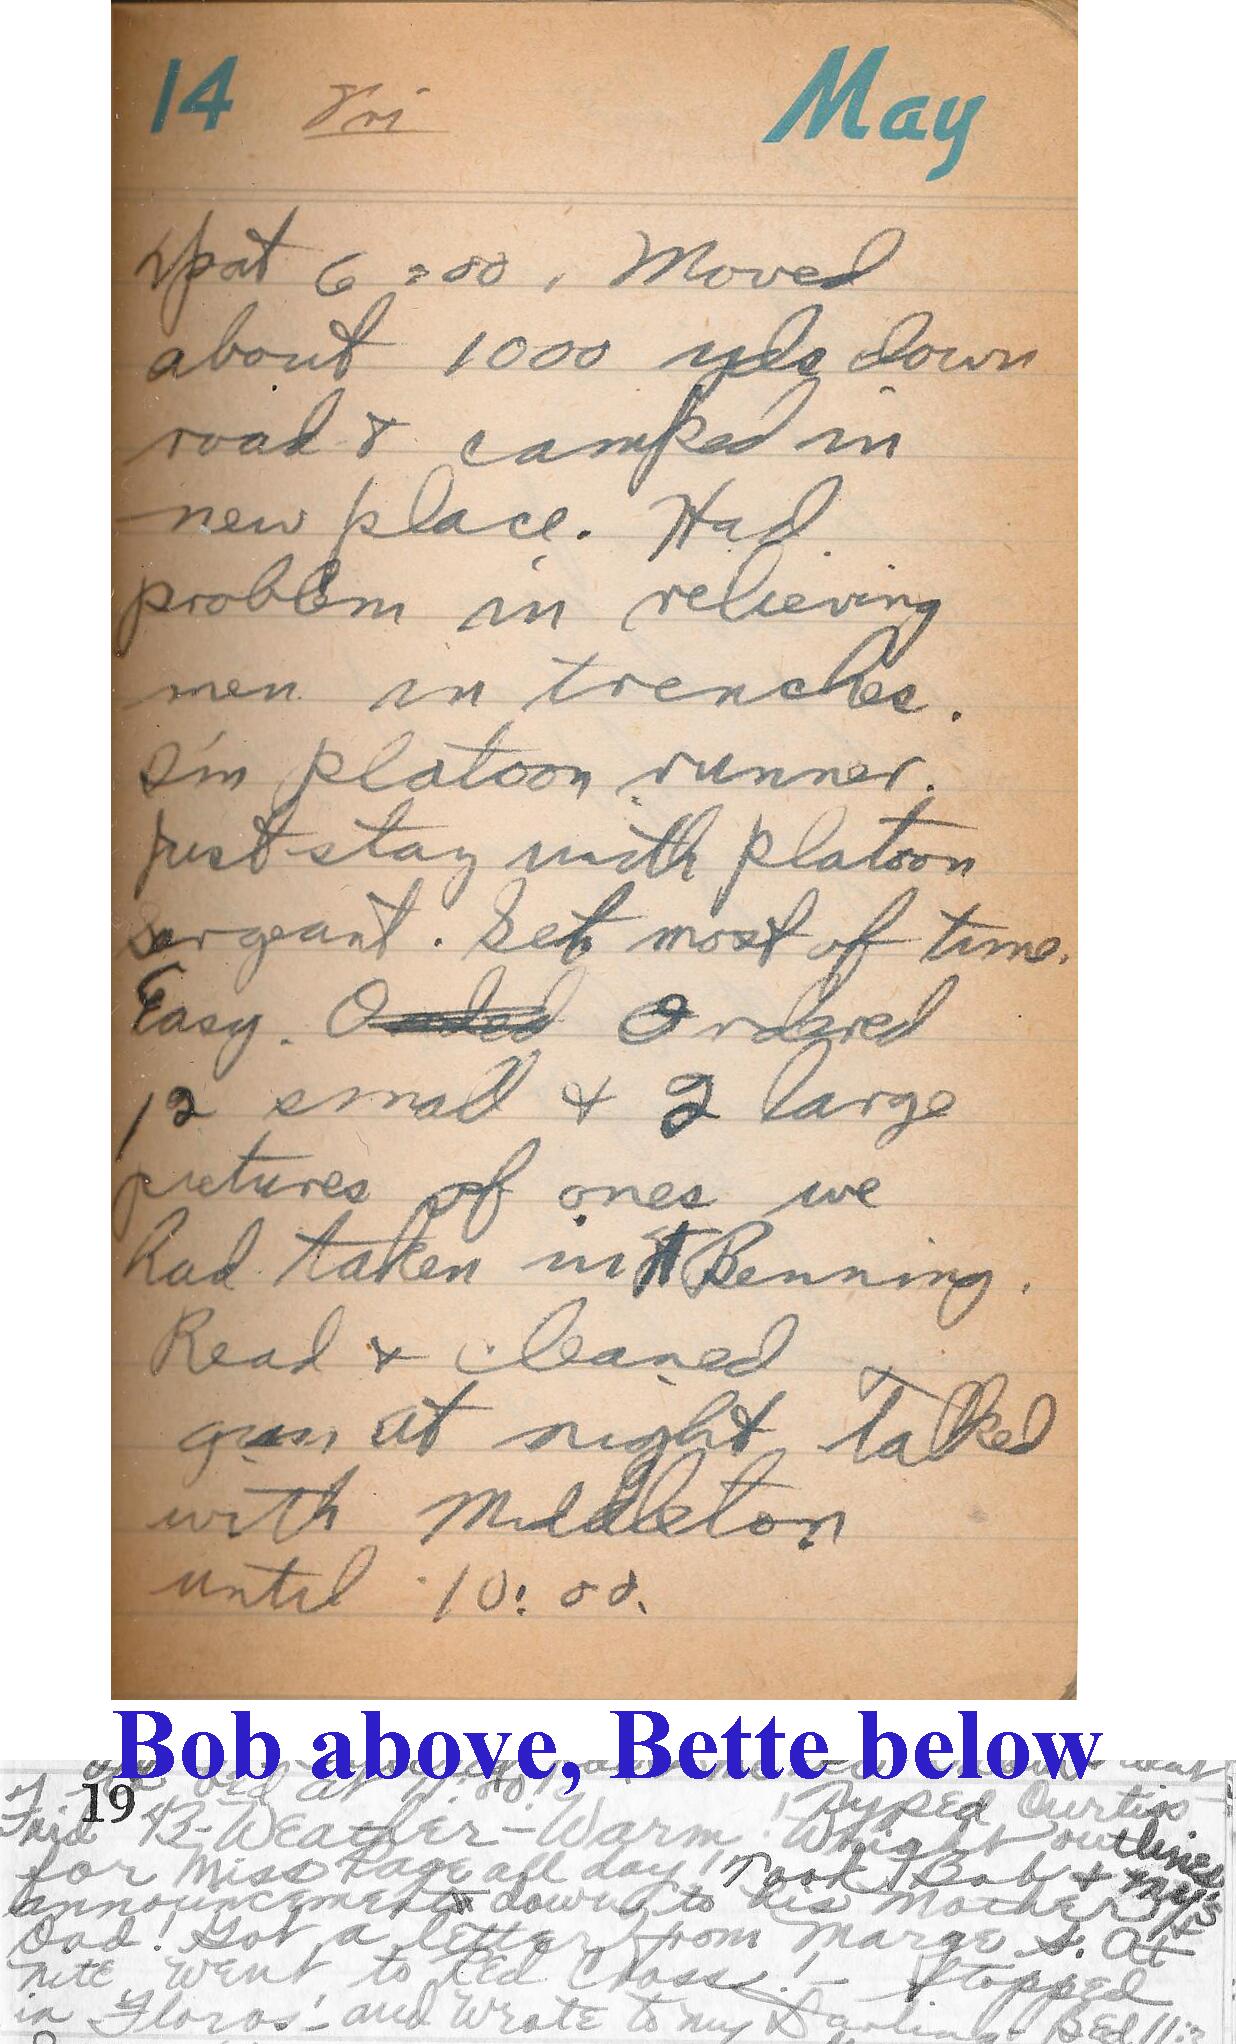 14 Fri May
Up at 6:00. Moved
about 1000 yds down
road & camped in
new place. Had
problem in relieving
men in trenches.
I'm platoon runner.
Just stay with platoon
sargeant. Set most of time.
Easy. Ordered
12 small & 2 large
pictures of ones we
had taken in Ft Benning.
Read & cleaned
gun at night Talked
with Middleton
until 10:00.
Bob above, Bette below
19
Frid 43-Weather-Warm! Typed Curtis
Wright outlines
for Miss Page all day! Took Bob & my's
announcements down to his Mother &
Dad! Got a letter from Marge S. At
nite went to Red Cross!- Stopped
in Floros! and wrote to my Darling- Bed 11: